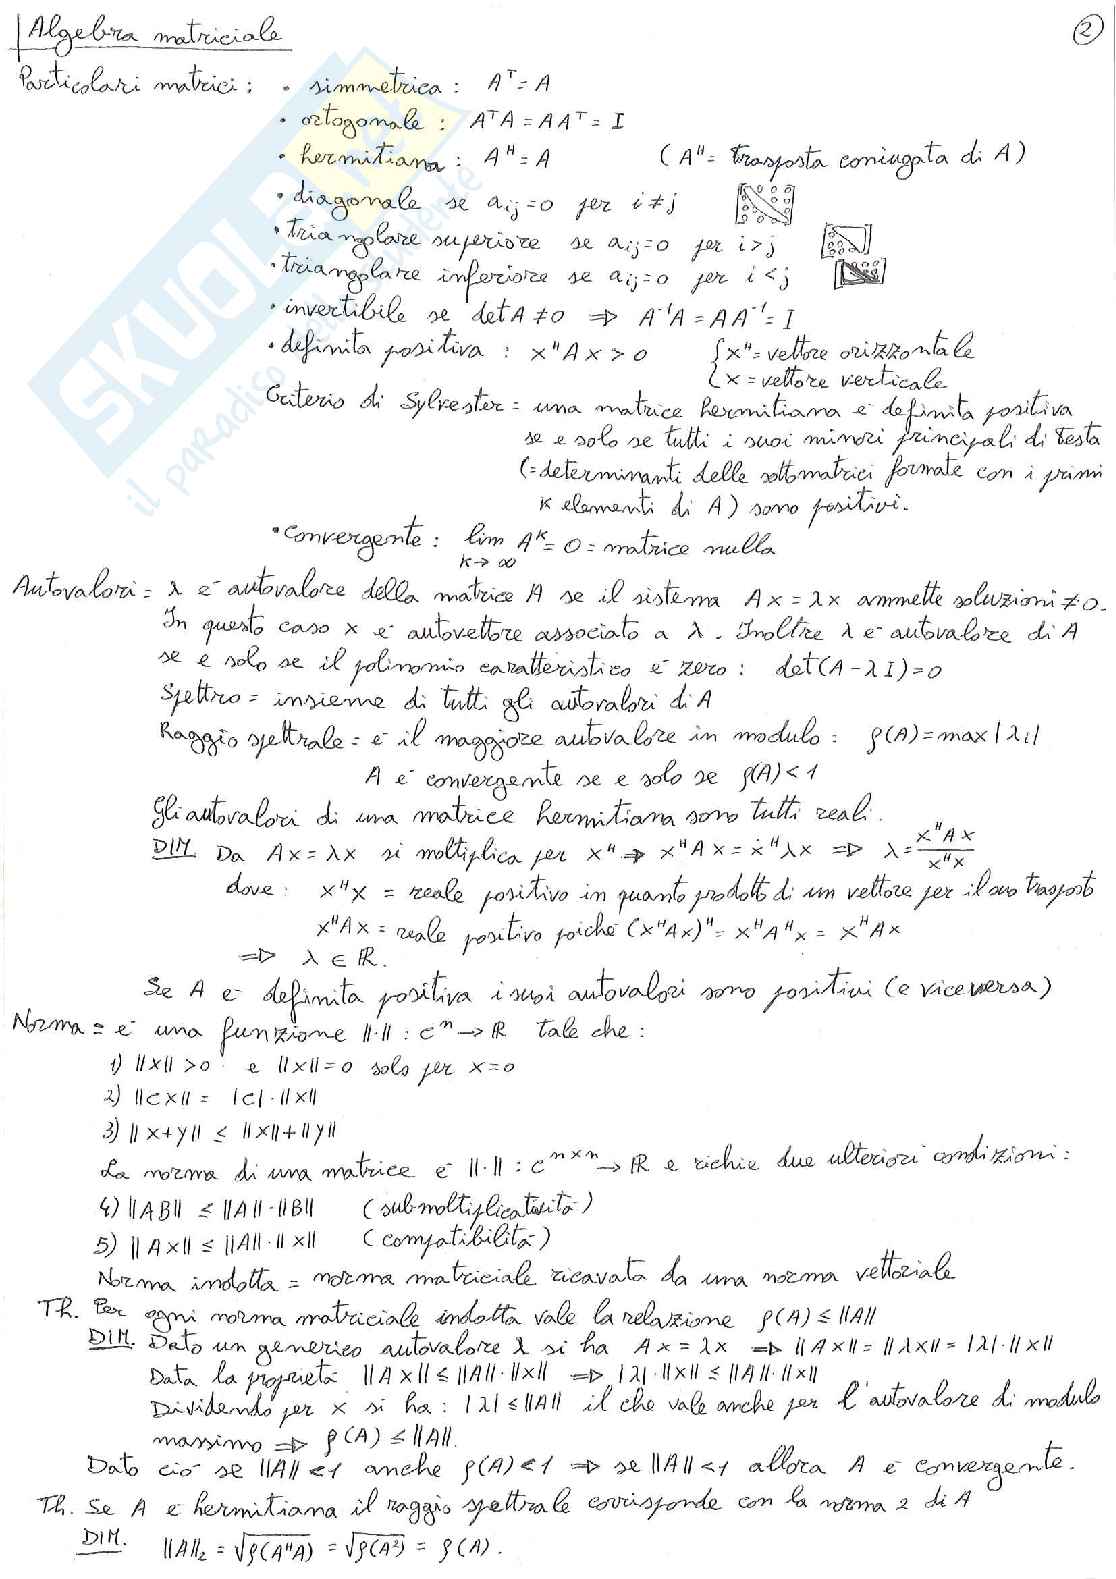 Algebra matriciale
2
Particolari matrici: • simmetrica: Aᵀ = A
• ortogonale: AᵀA = AAᵀ = I
• hermitiana: Aᴴ = A (Aᴴ = trasposta coniugata di A)
• diagonale se aᵢⱼ=0 per i≠j
• triangolare superiore se aᵢⱼ=0 per i>j
• triangolare inferiore se aᵢⱼ=0 per i<j
• invertibile se det A ≠ 0 ⇒ A⁻¹A = AA⁻¹ = I
• definita positiva: xᴴAx > 0 { xᴴ = vettore orizzontale
x = vettore verticale
Criterio di Sylvester = una matrice hermitiana è definita positiva
se e solo se tutti i suoi minori principali di testa
(= determinanti delle sottomatrici formate con i primi
K elementi di A) sono positivi.
• convergente: lim Aᴷ = 0 = matrice nulla
K→∞
Autovalori = λ è autovalore della matrice A se il sistema Ax = λx ammette soluzioni ≠ 0.
In questo caso x è autovettore associato a λ. Inoltre λ è autovalore di A
se e solo se il polinomio caratteristico è zero: det(A - λI) = 0
Spettro = insieme di tutti gli autovalori di A
Raggio spettrale = è il maggiore autovalore in modulo: ρ(A) = max|λᵢ|
A è convergente se e solo se ρ(A) < 1
Gli autovalori di una matrice hermitiana sono tutti reali.
DIM. Da Ax = λx si moltiplica per xᴴ ⇒ xᴴAx = xᴴλx ⇒ λ = xᴴAx / xᴴx
dove: xᴴx = reale positivo in quanto prodotto di un vettore per il suo trasposto
xᴴAx = reale positivo poiché (xᴴAx)ᴴ = xᴴAᴴx = xᴴAx
⇒ λ ∈ ℝ.
Se A è definita positiva i suoi autovalori sono positivi (e viceversa)
Norma = è una funzione ‖·‖ : Cⁿ → ℝ tale che:
1) ‖x‖ > 0 e ‖x‖ = 0 solo per x = 0
2) ‖cx‖ = |c|·‖x‖
3) ‖x+y‖ ≤ ‖x‖+‖y‖
La norma di una matrice è ‖·‖ : Cⁿˣⁿ → ℝ e richie due ulteriori condizioni:
4) ‖AB‖ ≤ ‖A‖·‖B‖ (submoltiplicatività)
5) ‖Ax‖ ≤ ‖A‖·‖x‖ (compatibilità)
Norma indotta = norma matriciale ricavata da una norma vettoriale
Th. Per ogni norma matriciale indotta vale la relazione ρ(A) ≤ ‖A‖
DIM. Dato un generico autovalore λ si ha Ax = λx ⇒ ‖Ax‖ = ‖λx‖ = |λ|·‖x‖
Data la proprietà ‖Ax‖ ≤ ‖A‖·‖x‖ ⇒ |λ|·‖x‖ ≤ ‖A‖·‖x‖
Dividendo per x si ha: |λ| ≤ ‖A‖ il che vale anche per l'autovalore di modulo
massimo ⇒ ρ(A) ≤ ‖A‖.
Dato ciò se ‖A‖ < 1 anche ρ(A) < 1 ⇒ se ‖A‖ < 1 allora A è convergente.
Th. Se A è hermitiana il raggio spettrale corrisponde con la norma 2 di A
DIM. ‖A‖₂ = √ρ(AᴴA) = √ρ(A²) = ρ(A).
SKUOLA.net
il paradiso dello studente